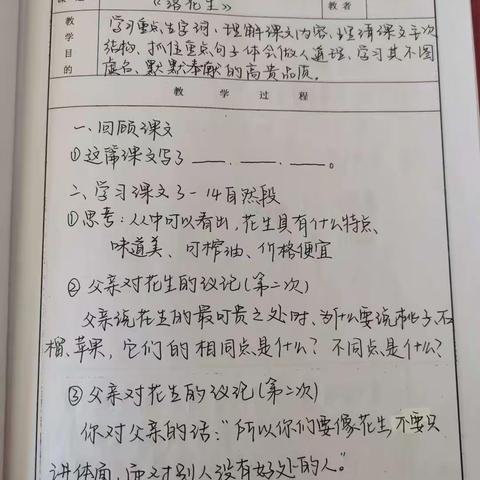 《落花生》
教者
教学目的
学习重点生字词，理解课文内容，理清课文主次
结构，抓住重点句子体会做人道理，学习其不图
虚名、默默奉献的高贵品质。
教学过程
一、回顾课文
①这篇课文写了 ___、___、___。
二、学习课文3-14自然段
①思考：从中可以看出，花生具有什么特点、
味道美、可榨油、价格便宜
②父亲对花生的议记(第二次)
父亲说花生的最可贵之处时、为什么要说桃子、石
榴、苹果，它们的相同点是什么？不同点是什么？
③父亲对花生的议论(第二次)
你对父亲的话：“所以你们要像花生，不要只
讲体面，而又对别人没有好处的人。”